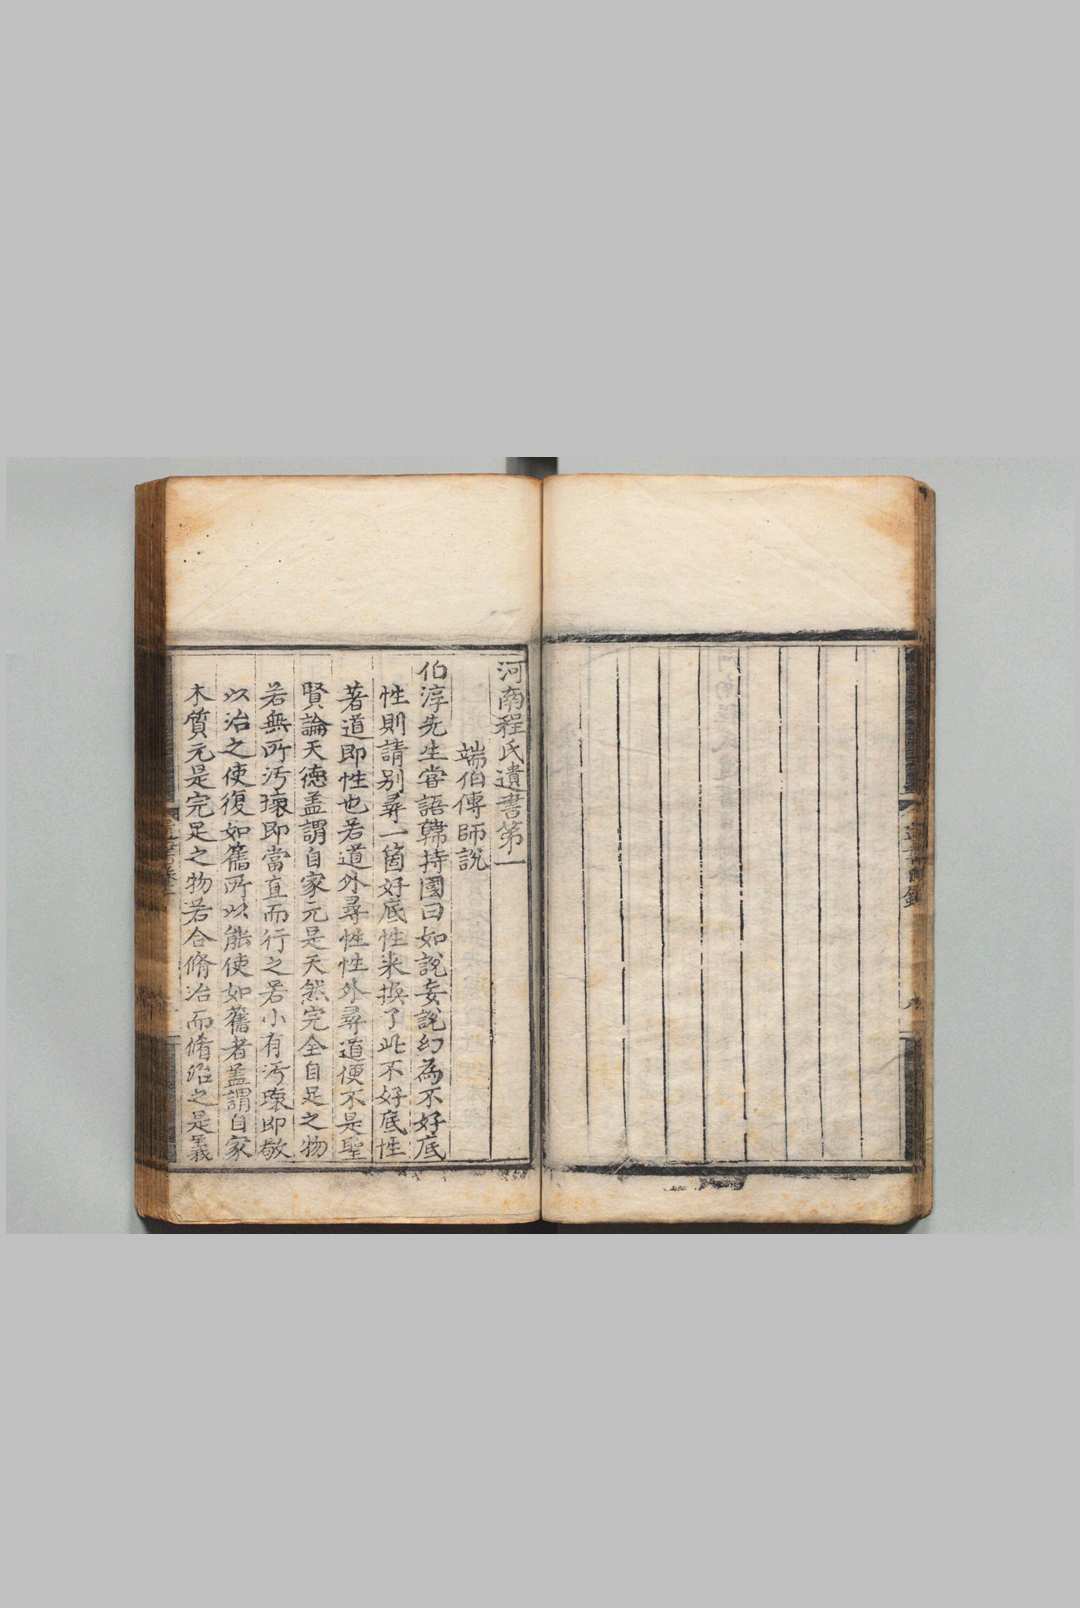 河南程氏遺書第一
端伯傳師說
伯淳先生甞語韓持國曰如說妄說幻為不好底
性則請别尋一箇好底性來換了此不好底性
著道即性也若道外尋性性外尋道便不是聖
賢論天德盖謂自家元是天然完全自足之物
若無所汚壞即當直而行之若小有汚壞即敬
以治之使復如舊所以能使如舊者盖謂自家
本質元是完足之物若合脩治而脩治之是義